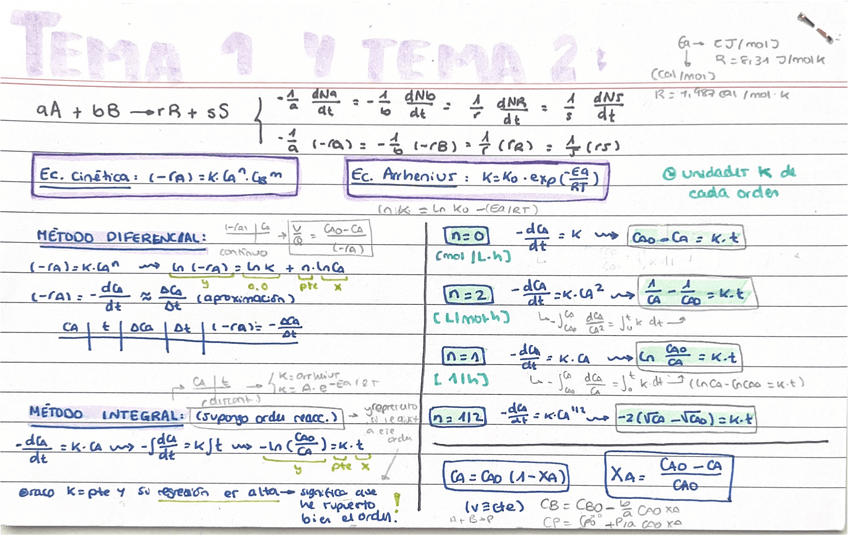 TEMA 1 Y TEMA 2:
Ea → [J/mol]
R = 8,31 J/mol K
[cal/mol]
R = 1,987 cal/mol·K
aA + bB → rR + sS
-1/a dNa/dt = -1/b dNb/dt = 1/r dNR/dt = 1/s dNs/dt
-1/a (-ra) = -1/b (-rB) = 1/r (rR) = 1/s (rs)
Ec. Cinética: (-rA) = K·CA^n·CB^m
Ec. Arrhenius: K = K0·exp(-Ea/RT)
unidades K de
cada orden
ln K = ln K0 - (Ea/RT)
MÉTODO DIFERENCIAL:
(-ra) | Ca
continuo
V/Q = CA0 - CA / (-rA)
(-rA) = K·CA^n → ln(-rA) = ln K + n·ln CA
y o.o pte x
(-rA) = -dCA/dt ≈ ΔCA/Δt (aproximación)
CA | t | ΔCA | Δt | (-rA) = -ΔCA/Δt
→ CA | t
(discont.)
K = arrhenius
K = A·e^-Ea/RT
MÉTODO INTEGRAL: (supongo orden reacc.)
a ese
orden
-dCA/dt = K·CA → -∫dCA/dt = K∫t → -ln(CA0/CA) = K·t
y pte x
saco K = pte y su regresión es alta → significa que
he supuesto
bien el orden. !
n=0 -dCA/dt = K → CA0 - CA = K·t
[mol/L·h]
n=2 -dCA/dt = K·CA² → 1/CA - 1/CA0 = K·t
[L/mol·h]
-∫CA0^CA dCA/CA² = ∫0^t K dt
n=1 -dCA/dt = K·CA → ln CA0/CA = K·t
[1/h]
-∫CA0^CA dCA/CA = ∫0^t K·dt → (ln CA - ln CA0 = K·t)
n=1/2 -dCA/dt = K·CA^1/2 → -2(√CA - √CA0) = K·t
CA = CA0 (1 - XA)
XA = CA0 - CA / CA0
(V≡cte)
CB = CB0 - b/a CA0 XA
A + B → P
CP = CP0 + p/a CA0 XA